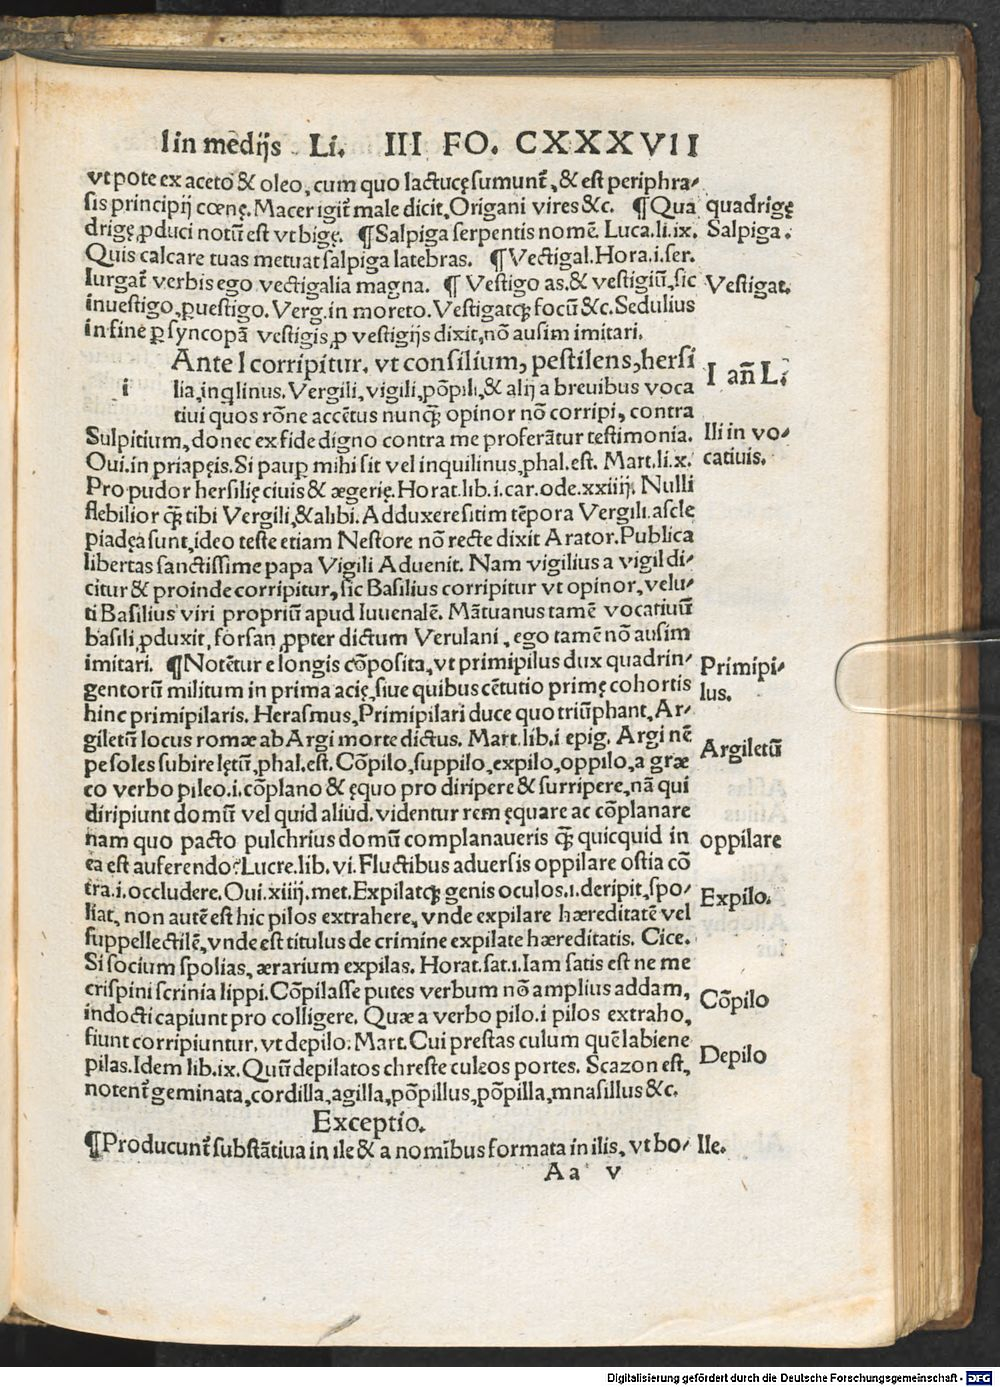 I in medijs Li. III FO. CXXXVII
vt pote ex aceto & oleo, cum quo lactucę sumunt᷑, & est periphra⸗
sis principij cœnę. Macer igit᷑ male dicit, Origani vires &c. ¶ Qua quadrigę
drigę, ꝓduci notū est vt bigę. ¶ Salpiga serpentis nomē. Luca. li. ix. Salpiga.
Quis calcare tuas metuat salpiga latebras. ¶ Vectigal. Hora. i. ser.
Iurgat᷑ verbis ego vectigalia magna. ¶ Vestigo as. & vestigiū, sic Vestigat.
inuestigo, ꝑuestigo. Verg. in moreto. Vestigatqꝫ focū &c. Sedulius
in fine ꝑ syncopā vestigis, ꝓ vestigijs dixit, nō ausim imitari.
Ante l corripitur. vt consilium, pestilens, hersi I añ L.
i lia, inq̇linus. Vergili, vigili, pōpili, & alij a breuibus voca
tiui quos rōne accētus nunqꝫ̄ opinor nō corripi, contra
Sulpitium, donec ex fide digno contra me proferātur testimonia. Ili in vo⸗
Oui. in priapęis. Si paup̱ mihi sit vel inquilinus, phal. est. Mart. li. x. catiuis.
Pro pudor hersilię ciuis & ægerię. Horat. lib. i. car. ode. xxiiij. Nulli
flebilior qꝫ̄ tibi Vergili, & alibi. Adduxere sitim tēpora Vergili. ascle
piadęa sunt, ideo teste etiam Nestore nō recte dixit Arator. Publica
libertas sanctissime papa Vigili Aduenit. Nam vigilius a vigil di⸗
citur & proinde corripitur, sic Basilius corripitur vt opinor, velu⸗
ti Basilius viri propriū apud Iuuenalē. Mātuanus tamē vocatiuū
basili ꝓduxit, forsan ꝓpter dictum Verulani, ego tamē nō ausim
imitari. ¶ Notētur e longis cōposita, vt primipilus dux quadrin⸗ Primipi⸗
gentorū militum in prima acię, siue quibus cētutio primę cohortis lus.
hinc primipilaris. Herasmus, Primipilari duce quo triūphant, Ar⸗
giletū locus romæ ab Argi morte dictus. Mart. lib. i epig. Argi nē Argiletū
pe soles subire lętū, phal. est. Cōpilo, suppilo, expilo, oppilo, a græ
co verbo pileo. i. cōplano & ęquo pro diripere & surripere, nā qui
diripiunt domū vel quid aliud. videntur rem ęquare ac cōplanare
nam quo pacto pulchrius domū complanaueris qꝫ̄ quicquid in oppilare
ea est auferendo? Lucre. lib. vi. Fluctibus aduersis oppilare ostia cō
tra. i. occludere. Oui. xiiij. met. Expilatqꝫ genis oculos. i. deripit, spo⸗ Expilo.
liat, non autē est hic pilos extrahere, vnde expilare hæreditatē vel
suppellectilē, vnde est titulus de crimine expilate hæreditatis. Cice.
Si socium spolias, ærarium expilas. Horat. sat. i. Iam satis est ne me
crispini scrinia lippi. Cōpilasse putes verbum nō amplius addam, Cōpilo
indocti capiunt pro colligere. Quæ a verbo pilo. i pilos extraho,
fiunt corripiuntur, vt depilo. Mart. Cui prestas culum quē labiene Depilo
pilas. Idem lib. ix. Quū depilatos chreste culeos portes. Scazon est,
notent᷑ geminata, cordilla, agilla, pōpillus, pōpilla, mnasillus &c.
Exceptio.
¶ Producunt᷑ substātiua in ile & a nomībus formata in ilis, vt bo⸗ Ile.
Aa v
Digitalisierung gefördert durch die Deutsche Forschungsgemeinschaft - DFG